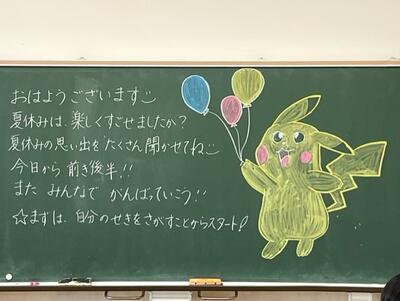 おはようございます
夏休みは、楽しくすごせましたか？
夏休みの思い出をたくさん聞かせてね
今日から 前き後半!!
また みんなで がんばっていこう!!
☆まずは、自分のせきをさがすことからスタート!